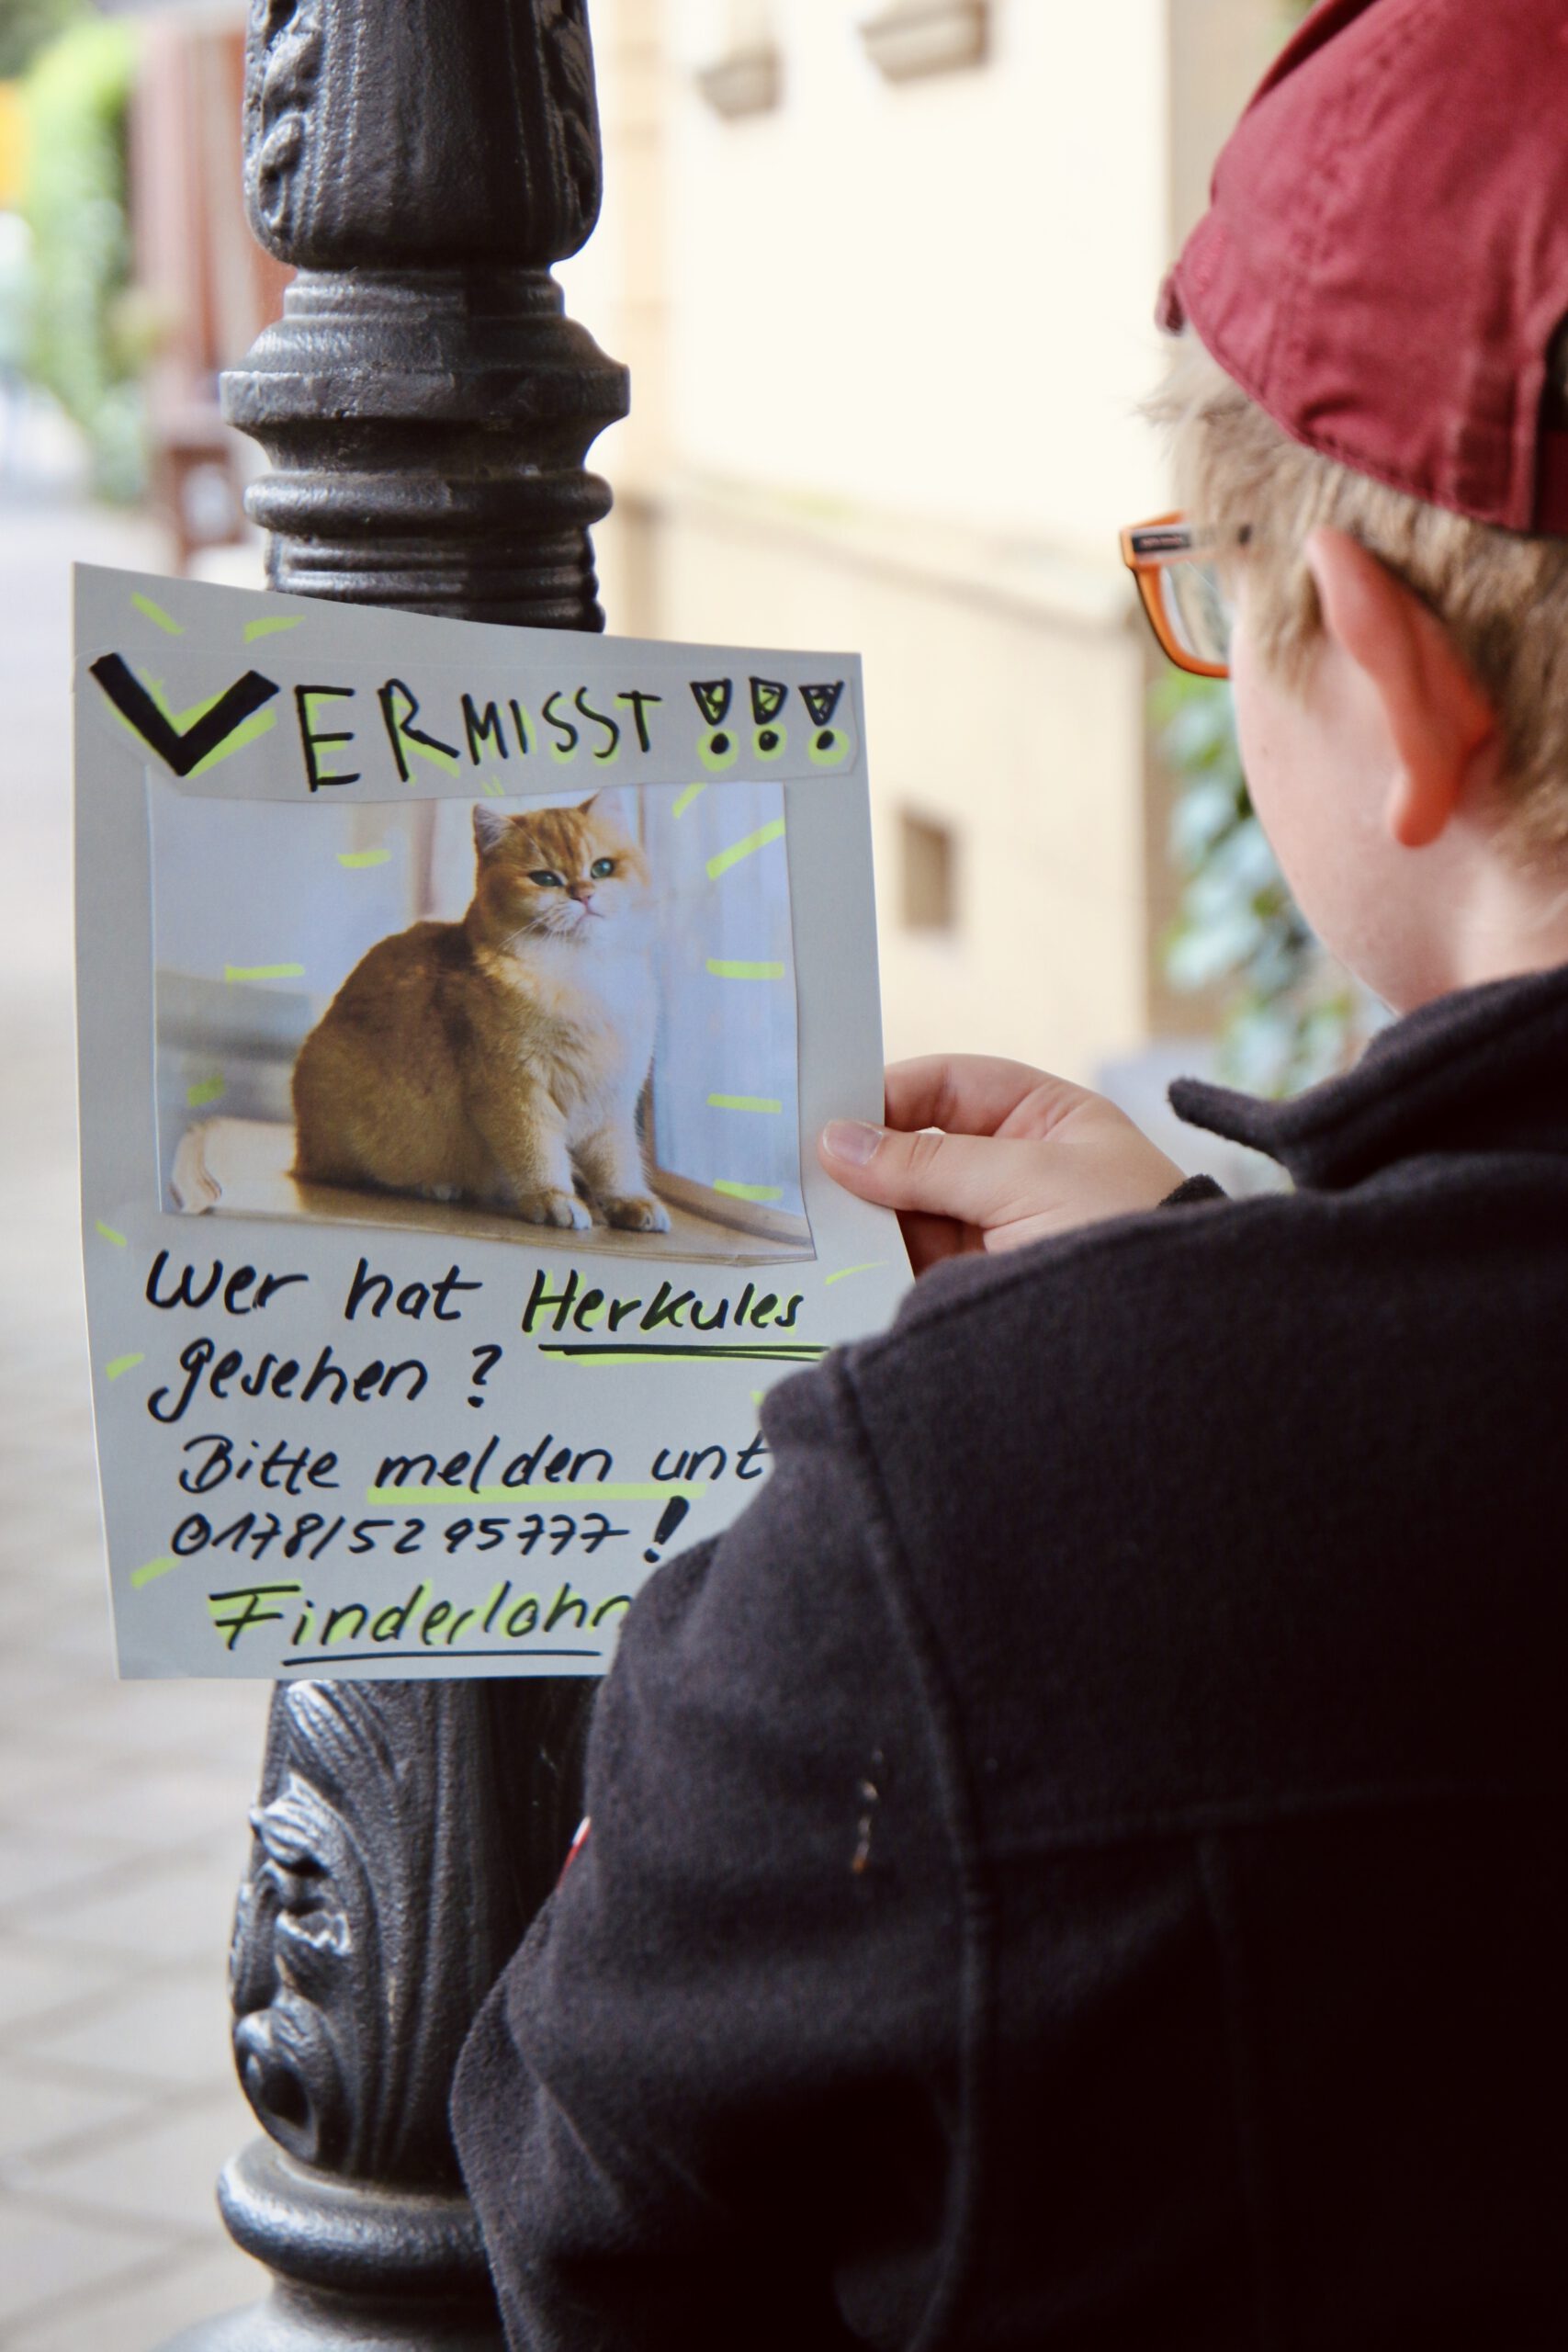 VERMISST !!!
Wer hat Herkules
gesehen?
Bitte melden unt
0178/5295777!
Finderlohn